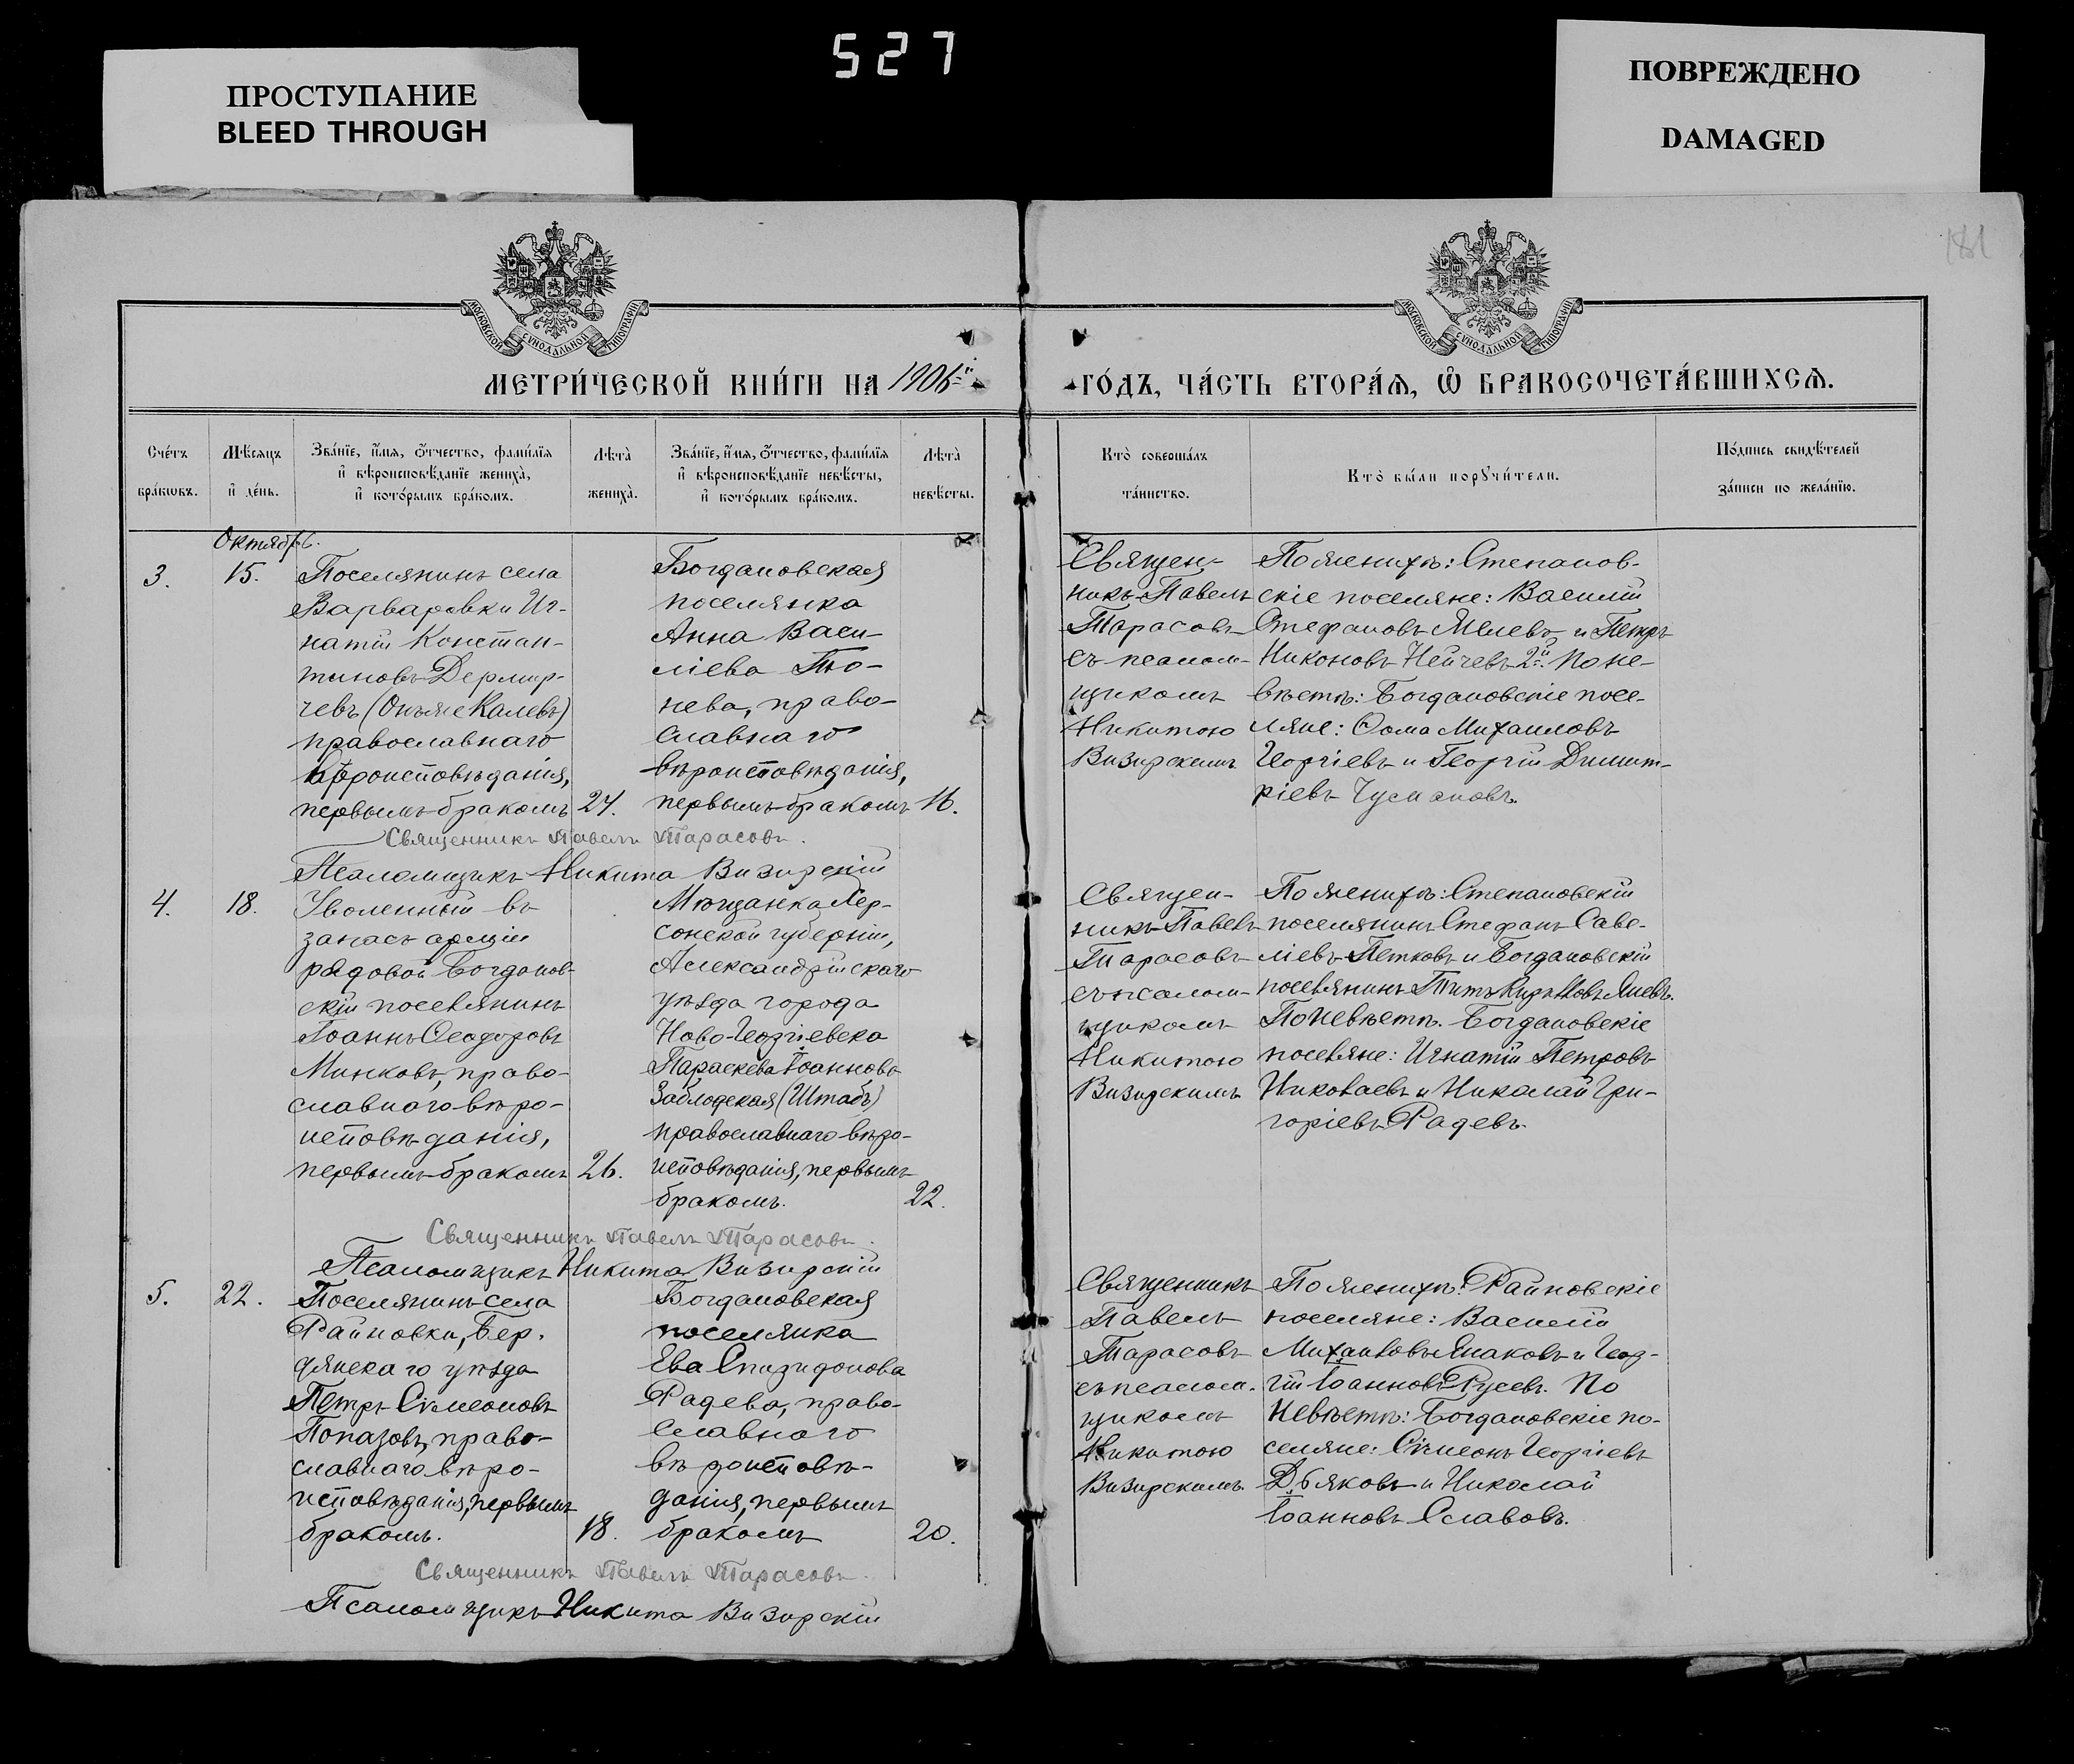 527
ПРОСТУПАНИЕ
BLEED THROUGH
ПОВРЕЖДЕНО
DAMAGED
181
МОСКОВСКОЙ СѴНОДАЛЬНОЙ ТИПОГРАФІИ
МОСКОВСКОЙ СѴНОДАЛЬНОЙ ТИПОГРАФІИ
МЕТРИ́ЧЕСКОЙ КНИ́ГИ НА 1906-й
ГО́ДЪ, ЧА́СТЬ ВТОРА́Ѧ, Ѽ БРАКОСОЧЕТА́ВШИХСѦ.
Сче́тъ
бра́кѡвъ.
Мѣ́сѧцъ
и҆ де́нь.
Зва́нїе, и҆́мѧ, ѻ҆́тчество, фами́лїѧ
и҆ вѣроисповѣ́данїе жениха̀,
и҆ кото́рымъ бра́комъ.
Лѣта̀
жениха̀.
Зва́нїе, и҆́мѧ, ѻ҆́тчество, фами́лїѧ
и҆ вѣроисповѣ́данїе невѣ́сты,
и҆ кото́рымъ бра́комъ.
Лѣта̀
невѣ́сты.
Кто̀ соверша́лъ
та́инство.
Кто̀ бы́ли порꙋчи́тели.
По́дпись свидѣ́телей
за́писи по жела́нїю.
Октябрь.
3.
15.
Поселянинъ села
Варваровки Иг-
натій Констан-
тиновъ Дермир-
чевъ (Онъ же Калевъ)
православнаго
вѣроисповѣданія,
первымъ бракомъ
24.
Богдановская
поселянка
Анна Васи-
ліева То-
нева, право-
славнаго
вѣроисповѣданія,
первымъ бракомъ
16.
Священ-
никъ Павелъ
Тарасовъ
съ псалом-
щикомъ
Никитою
Визирскимъ
По женихѣ: Степанов-
скіе поселяне: Василій
Стефановъ Желевъ и Петръ
Никоновъ Нейчевъ 2й. По не-
вѣстѣ: Богдановскіе посе-
ляне: Ѳома Михаиловъ
Георгіевъ и Георгій Димит-
ріевъ Чусмановъ.
Священникъ Павелъ Тарасовъ.
Псаломщикъ Никита Визирскій
4.
18.
Уволенный въ
запасъ арміи
рядовой Богданов-
скій поселянинъ
Іоаннъ Ѳеодоровъ
Минковъ, право-
славнаго вѣро-
исповѣданія,
первымъ бракомъ
26.
Мѣщанка Хер-
сонской губерніи,
Александрійскаго
уѣзда города
Ново-Георгіевска
Параскева Іоаннова
Заблодская (Штабъ)
православнаго вѣро-
исповѣданія, первымъ
бракомъ.
22.
Священ-
никъ Павелъ
Тарасовъ
съ псалом-
щикомъ
Никитою
Визирскимъ
По женихѣ: Степановскій
поселянинъ Стефанъ Саве-
ліевъ Петковъ и Богдановскій
поселянинъ Титъ Кириловъ Яневъ.
По невѣстѣ. Богдановскіе
поселяне: Игнатій Петровъ
Николаевъ и Николай Гри-
горіевъ Радевъ.
Священникъ Павелъ Тарасовъ.
Псаломщикъ Никита Визирскій
5.
22.
Поселянинъ села
Райновки, Бер-
дянскаго уѣзда
Петръ Сѵмеоновъ
Попазовъ, право-
славнаго вѣро-
исповѣданія, первымъ
бракомъ.
18.
Богдановская
поселянка
Ева Спиридонова
Радева, право-
славнаго
вѣроисповѣ-
данія, первымъ
бракомъ
20.
Священникъ
Павелъ
Тарасовъ
съ псалом-
щикомъ
Никитою
Визирскимъ
По женихѣ: Райновскіе
поселяне: Василій
Михаиловъ Янаковъ и Геор-
гій Іоанновъ Русевъ. По
невѣстѣ: Богдановскіе по-
селяне: Сѵмеонъ Георгіевъ
Дьяковъ и Николай
Іоанновъ Славовъ.
Священникъ Павелъ Тарасовъ.
Псаломщикъ Никита Визирскій